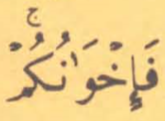 فَإِخْوَٰنُكُمْۚ